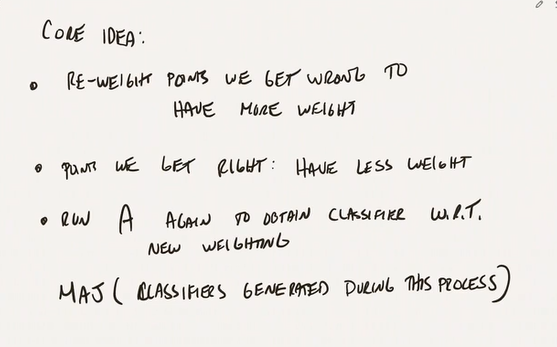 CORE IDEA:
• RE-WEIGHT POINTS WE GET WRONG TO
HAVE MORE WEIGHT
• POINTS WE GET RIGHT: HAVE LESS WEIGHT
• RUN A AGAIN TO OBTAIN CLASSIFIER W.R.T.
NEW WEIGHTING
MAJ ( CLASSIFIERS GENERATED DURING THIS PROCESS)